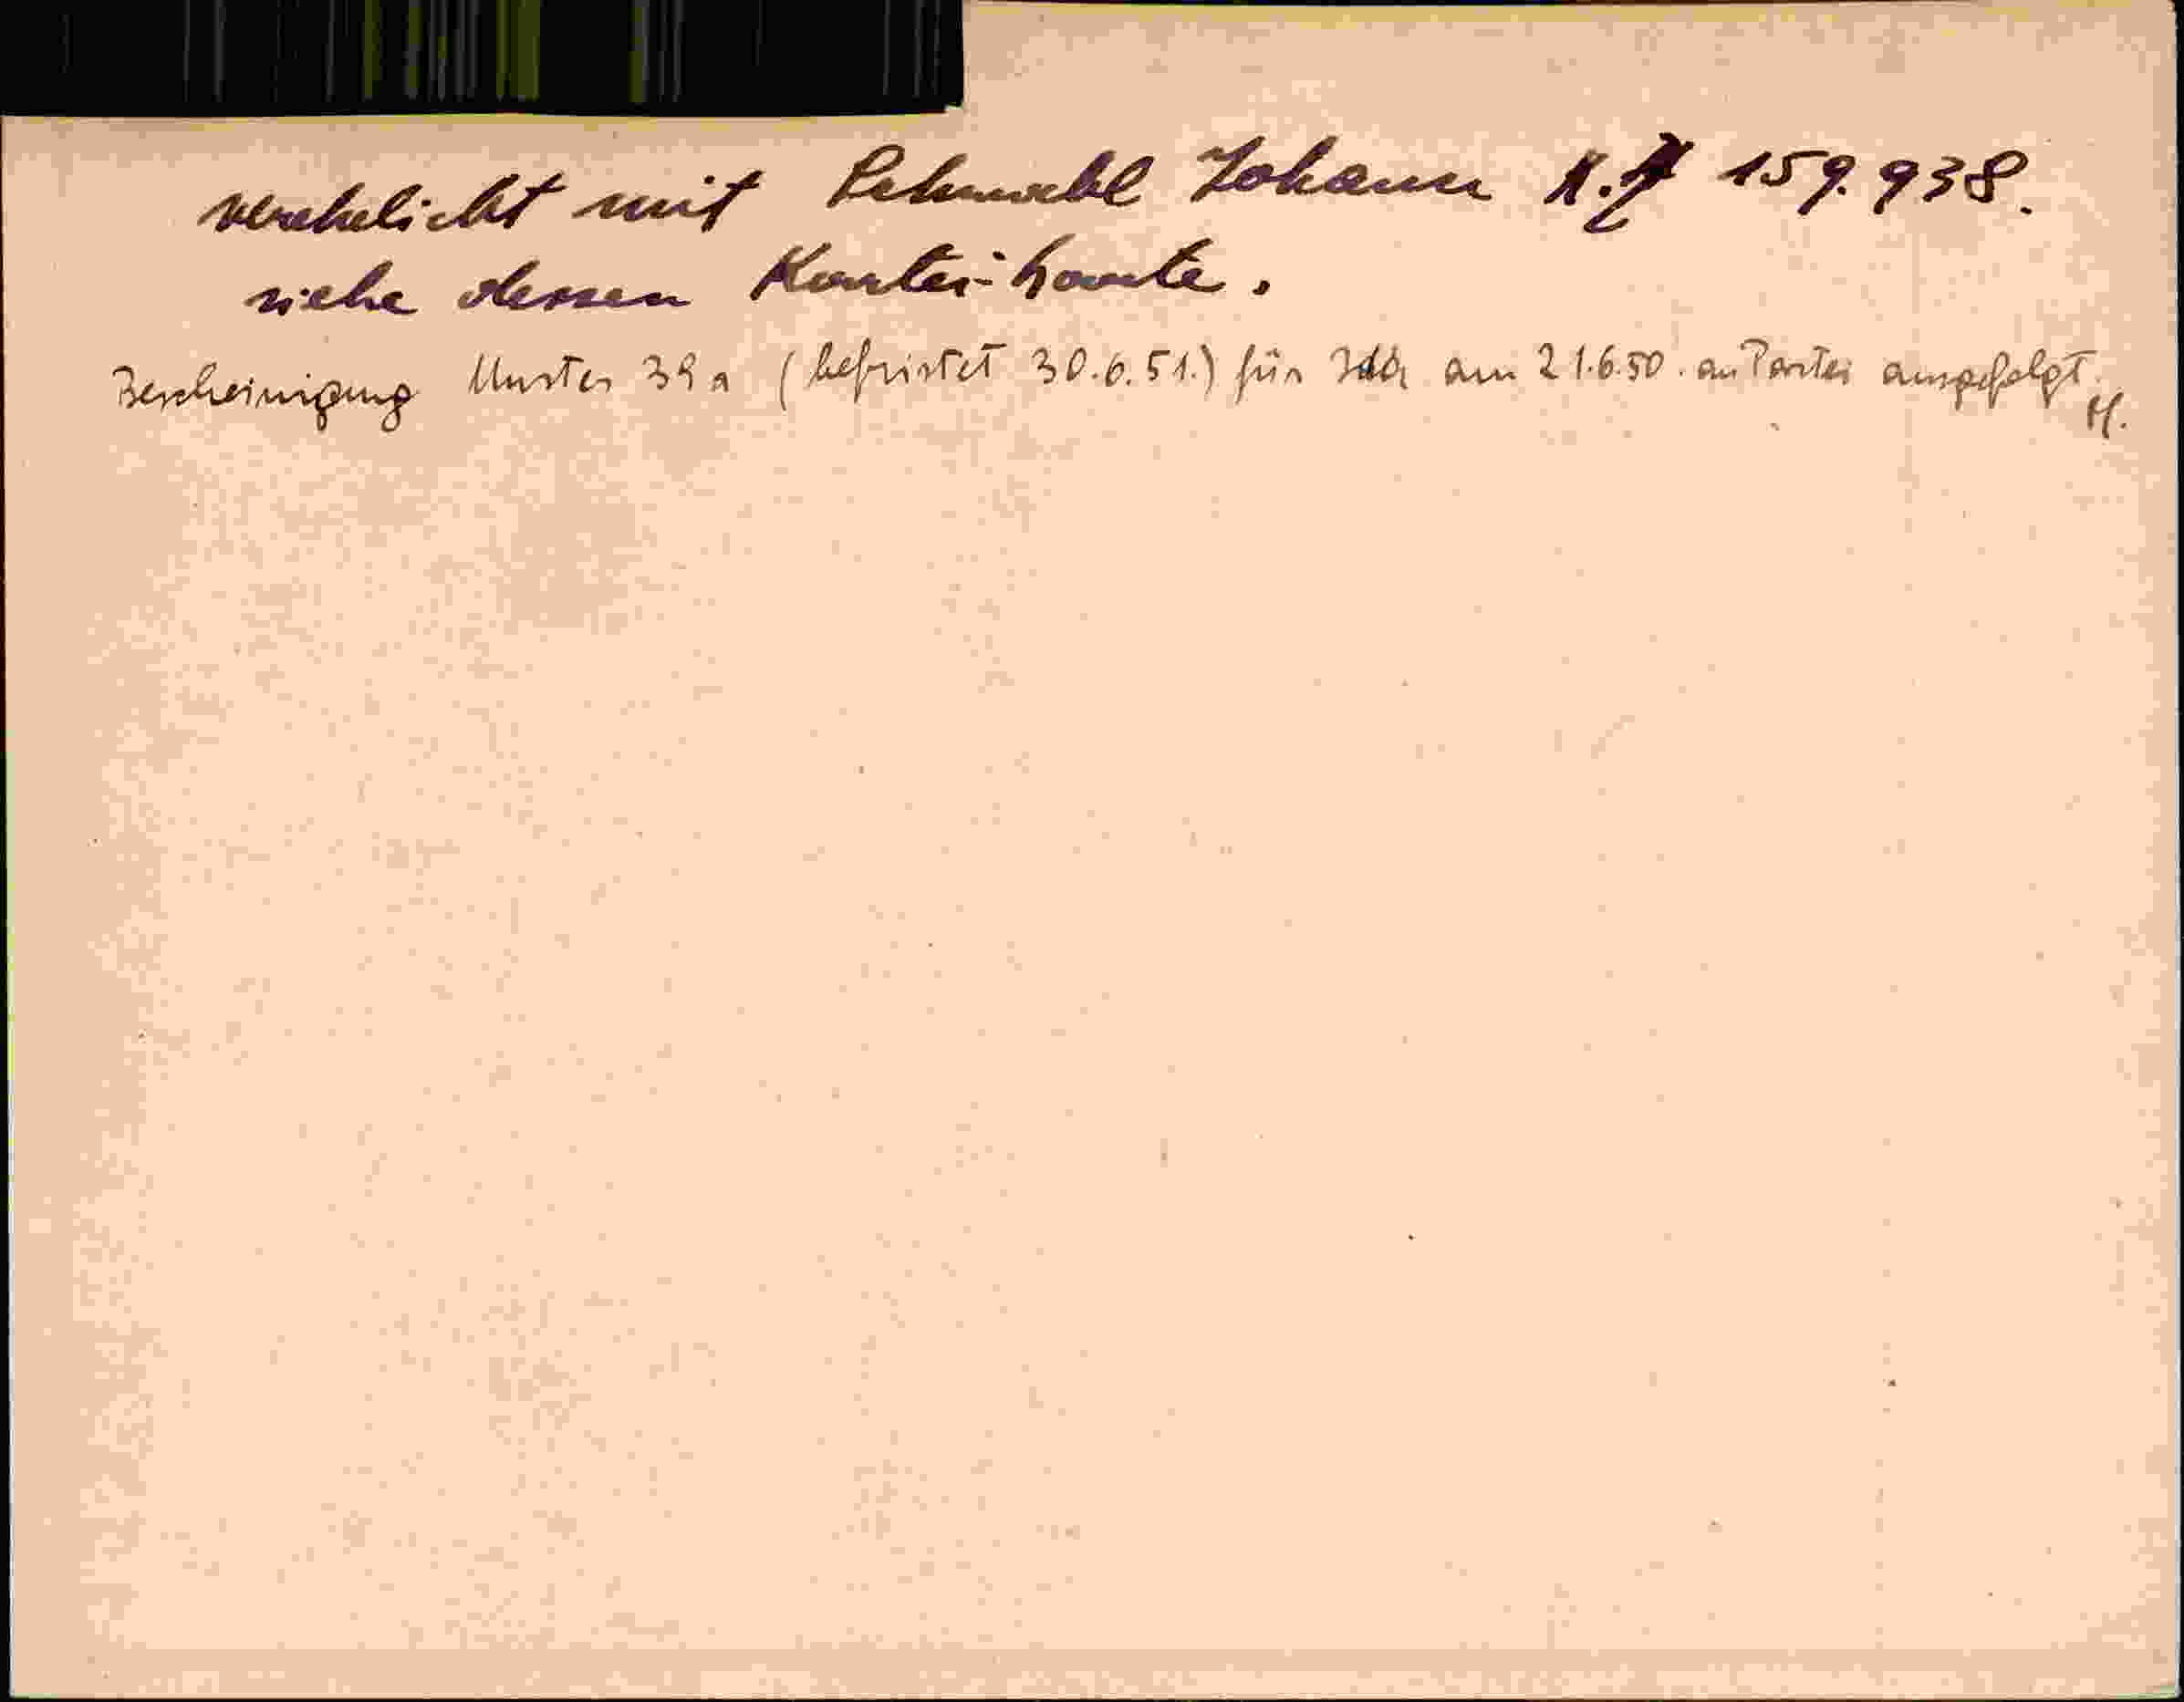 verehelicht mit Schwabl Johann K.Z 159.938.
siehe dessen Kartei-karte.
Bescheinigung Muster 39a (befristet 30.6.51.) für am 21.6.50. an Partei ausgefolgt.
H.